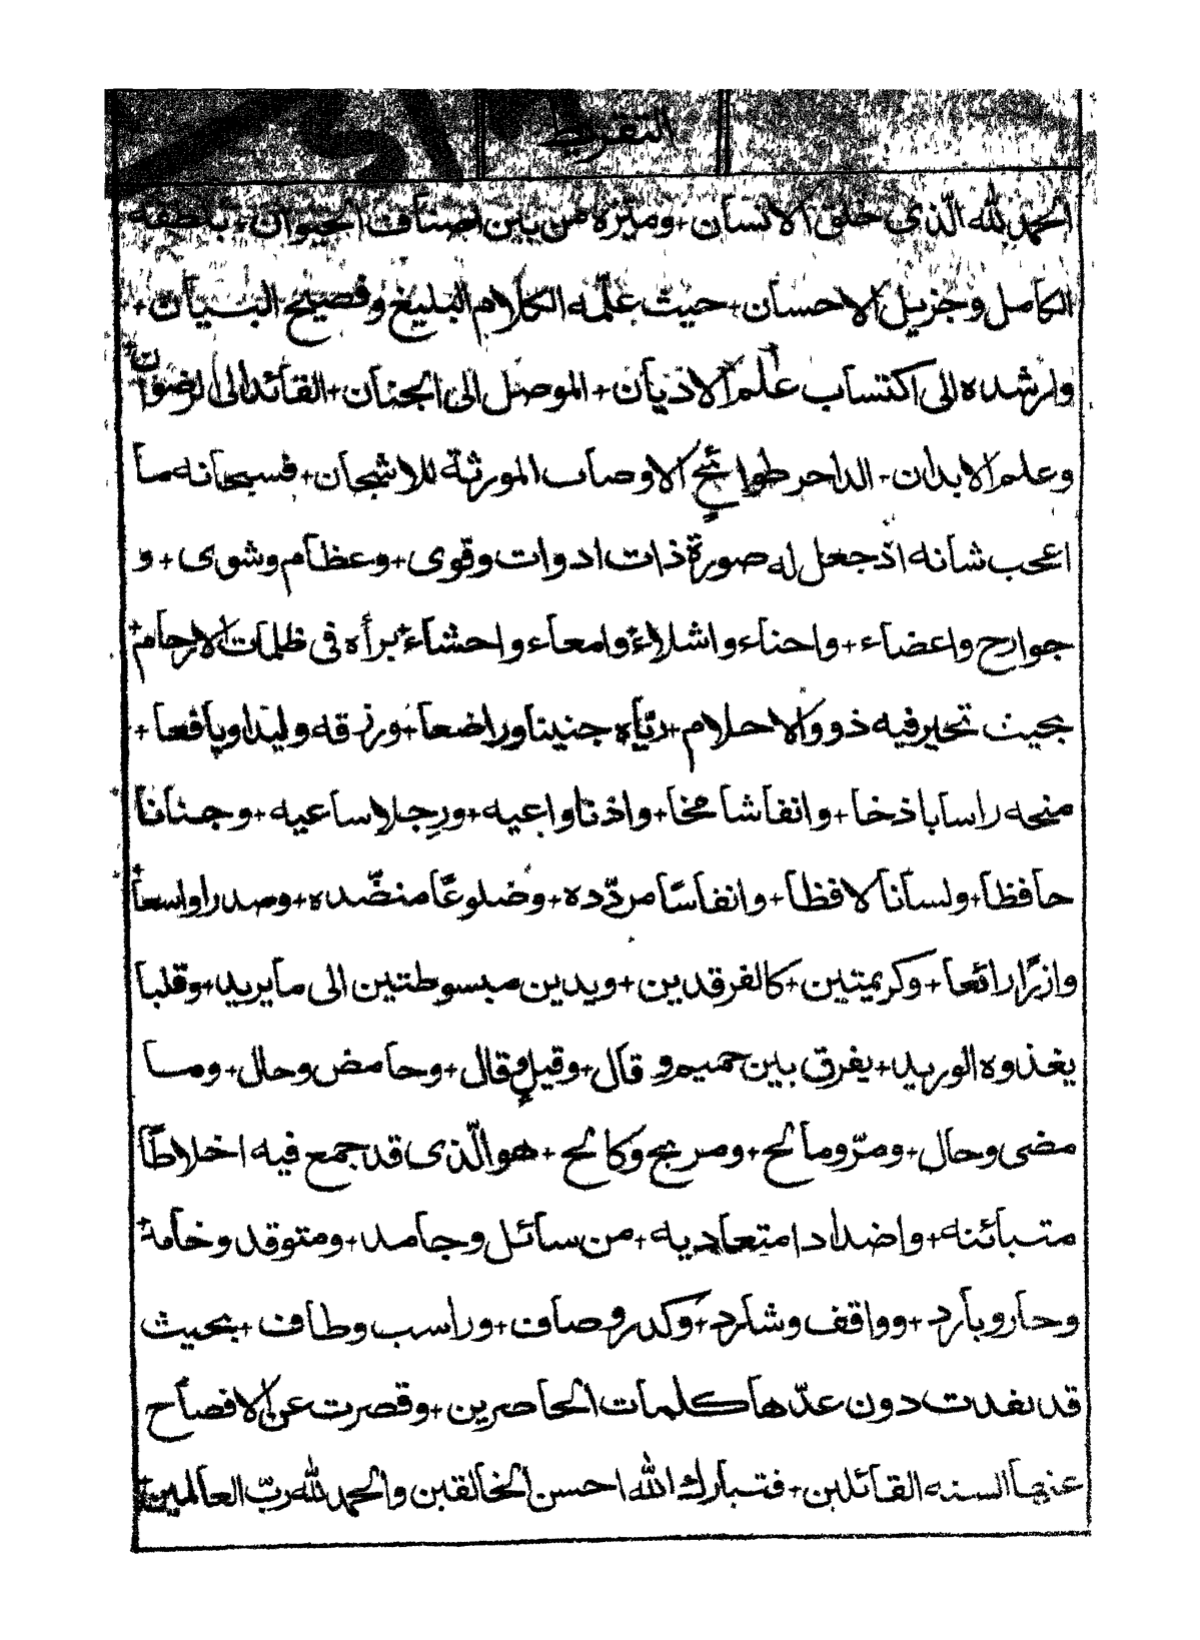 التقريظ
الحمد لله الّذي خلق الانسان+وميّزه من بين اصناف الحيوان+بلطفه
الكامل وجزيل الاحسان+حيث علّمه الكلام البليغ وفصيح البيان+
وارشده الى اكتساب علم الاديان+الموصل الى الجنان+القائد الى الرضوان+
وعلم الابدان-الداحر طوائح الاوصاب المورثة للاشجان+فسبحانه ما
اعجب شانه اذ جعل له صورة ذات ادوات وقوى+وعظام وشوى+و
جوارح واعضاء+واحناء واشلاء وامعاء واحشاء+برأه في ظلمات الارحام+
بحيث تحير فيه ذووالاحلام+ربّاه جنينا وراضعا+ورزقه وليدا ويافعا+
منحه راسا باذخا+وانفا شامخا+واذنا واعيه+ورجلا ساعيه+وجنانا
حافظا+ولسانا لافظا+وانفاسًا مردّده+وضلوعًا منضّده+وصدرا واسعا+
وازرًا رائعا+وكريمتين+كالفرقدين+ويدين مبسوطتين الى ما يريد+وقلبا
يغذوه الوريد+يفرق بين حميم و قال+وقيل وقال+وحامض وحال+وما
مضى وحال+ومرّ ومالح+ومربح وكالح+هو الّذى قد جمع فيه اخلاطًا
متبائنه+واضدادا متعاديه+من سائل وجامد+ومتوقد وخامد+
وحار وبارد+وواقف وشارد+وكدر وصاف+وراسب وطاف+بحيث
قد نفدت دون عدّها كلمات الحاصرين+وقصرت عن الافصاح
عنها السنه القائلين+فتبارك الله احسن الخالقين والحمد لله ربّ العالمين+